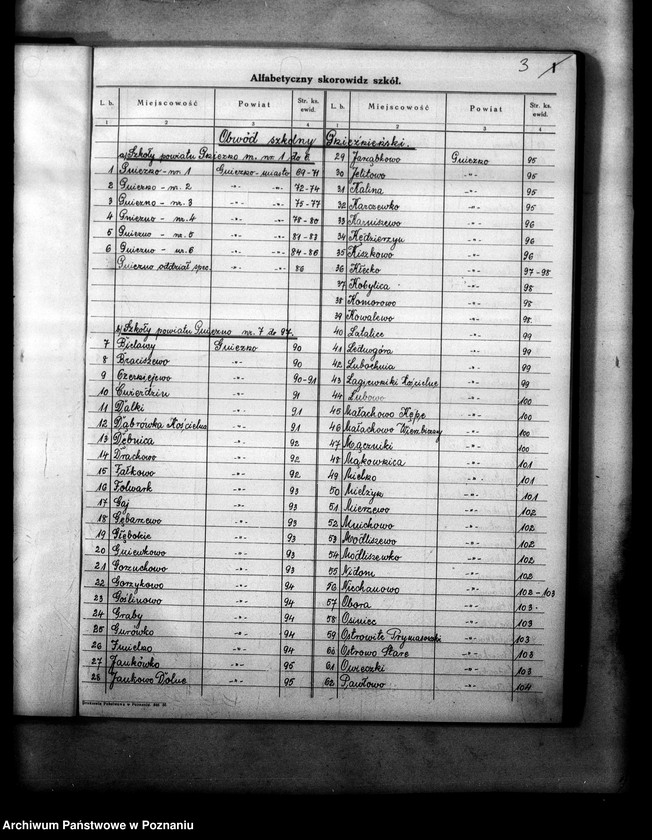 3 1
Alfabetyczny skorowidz szkół.
L. b. Miejscowość Powiat Str. ks. ewid. L. b. Miejscowość Powiat Str. ks. ewid.
1 2 3 4 1 2 3 4
Obwód szkolny Gnieźnieński.
a) Szkoły powiatu Gniezno m. nr. 1 do 6
1 Gniezno - nr. 1 Gniezno-miasto 69-71
2 Gniezno - nr. 2 -"- -"- 72-74
3 Gniezno - nr. 3 -"- -"- 75-77
4 Gniezno - nr. 4 -"- -"- 78-80
5 Gniezno - nr. 5 -"- -"- 81-83
6 Gniezno - nr. 6 -"- -"- 84-86
Gniezno oddział spec. -"- -"- 86
b) Szkoły powiatu Gniezno nr. 7 do 97.
7 Bielawy Gniezno 90
8 Braciszewo -"- 90
9 Czerniejewo -"- 90-91
10 Ćwierdzin -"- 91
11 Dalki -"- 91
12 Dąbrówka Kościelna -"- 91
13 Dębnica -"- 92
14 Drachowo -"- 92
15 Fałkowo -"- 92
16 Folwark -"- 93
17 Gaj -"- 93
18 Gębarzewo -"- 93
19 Głębokie -"- 93
20 Gniewkowo -"- 93
21 Gorzuchowo -"- 93
22 Gorzykowo -"- 94
23 Goślinowo -"- 94
24 Graby -"- 94
25 Gurówko -"- 94
26 Imielno -"- 94
27 Jankówko -"- 95
28 Jankowo Dolne -"- 95
29 Jarząbkowo Gniezno 95
30 Jelitowo -"- 95
31 Kalina -"- 95
32 Karczewko -"- 95
33 Karniszewo -"- 96
34 Kędzierzyn -"- 96
35 Kiszkowo -"- 96
36 Kłecko -"- 97-98
37 Kobylica -"- 98
38 Komorowo -"- 98
39 Kowalewo -"- 98
40 Latalice -"- 99
41 Ledwogóra -"- 99
42 Lubochnia -"- 99
43 Łagiewniki Kościelne -"- 99
44 Łubowo -"- 100
45 Małachowo Kępe -"- 100
46 Małachowo Wierzbiczany -"- 100
47 Mączniki -"- 100
48 Mąkownica -"- 101
49 Mielno -"- 101
50 Mielżyn -"- 101
51 Mierzewo -"- 102
52 Mnichowo -"- 102
53 Modliszewo -"- 102
54 Modliszewko -"- 102
55 Nidom -"- 102
56 Niechanowo -"- 102-103
57 Obora -"- 103
58 Osiniec -"- 103
59 Ostrowite Prymasowski -"- 103
60 Ostrowo Stare -"- 103
61 Owieczki -"- 103
62 Pawłowo -"- 104
Drukarnia Państwowa w Poznaniu
Archiwum Państwowe w Poznaniu